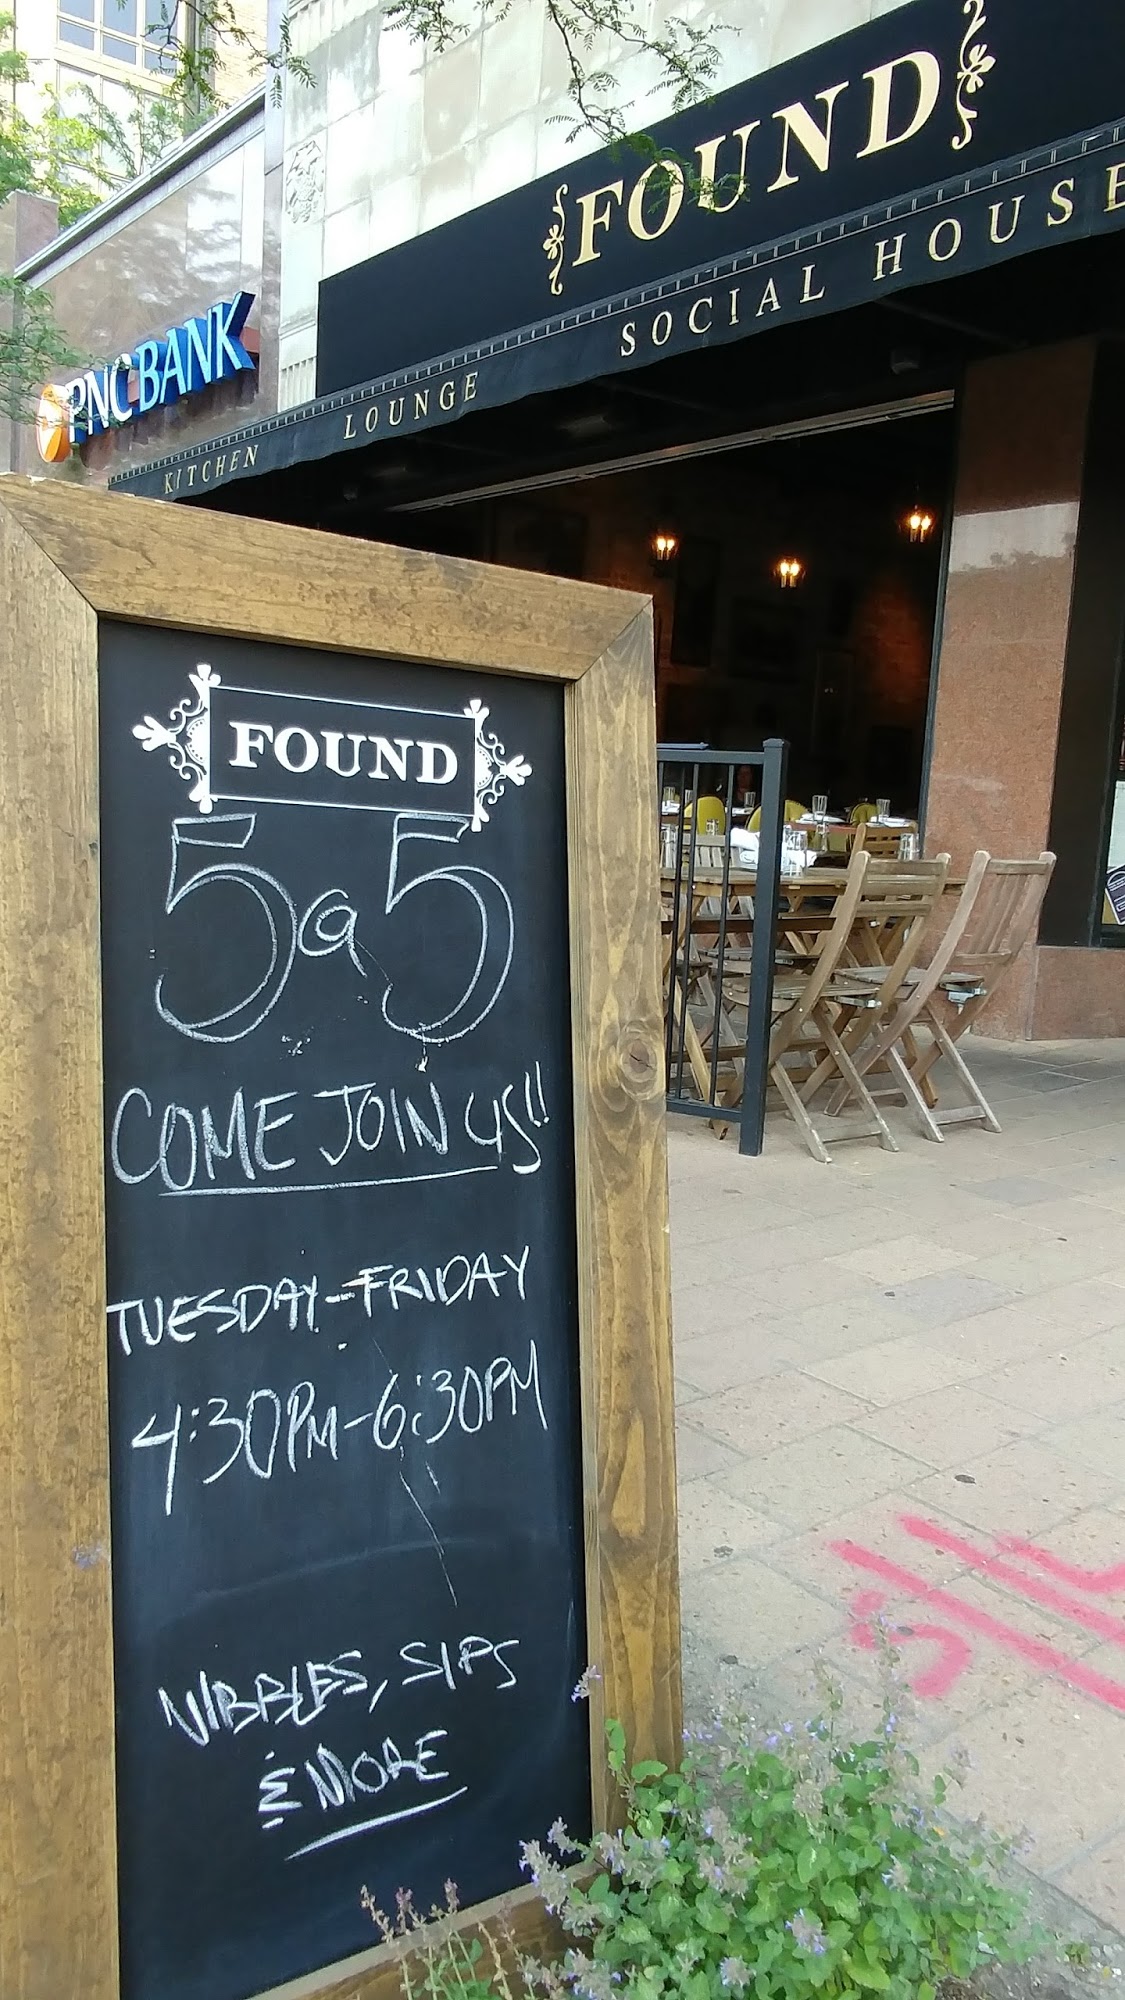 FOUND
SOCIAL HOUSE
LOUNGE
KITCHEN
PNC BANK
FOUND
5@5
COME JOIN US!!
TUESDAY-FRIDAY
4:30PM-6:30PM
NIBBLES, SIPS
& MORE